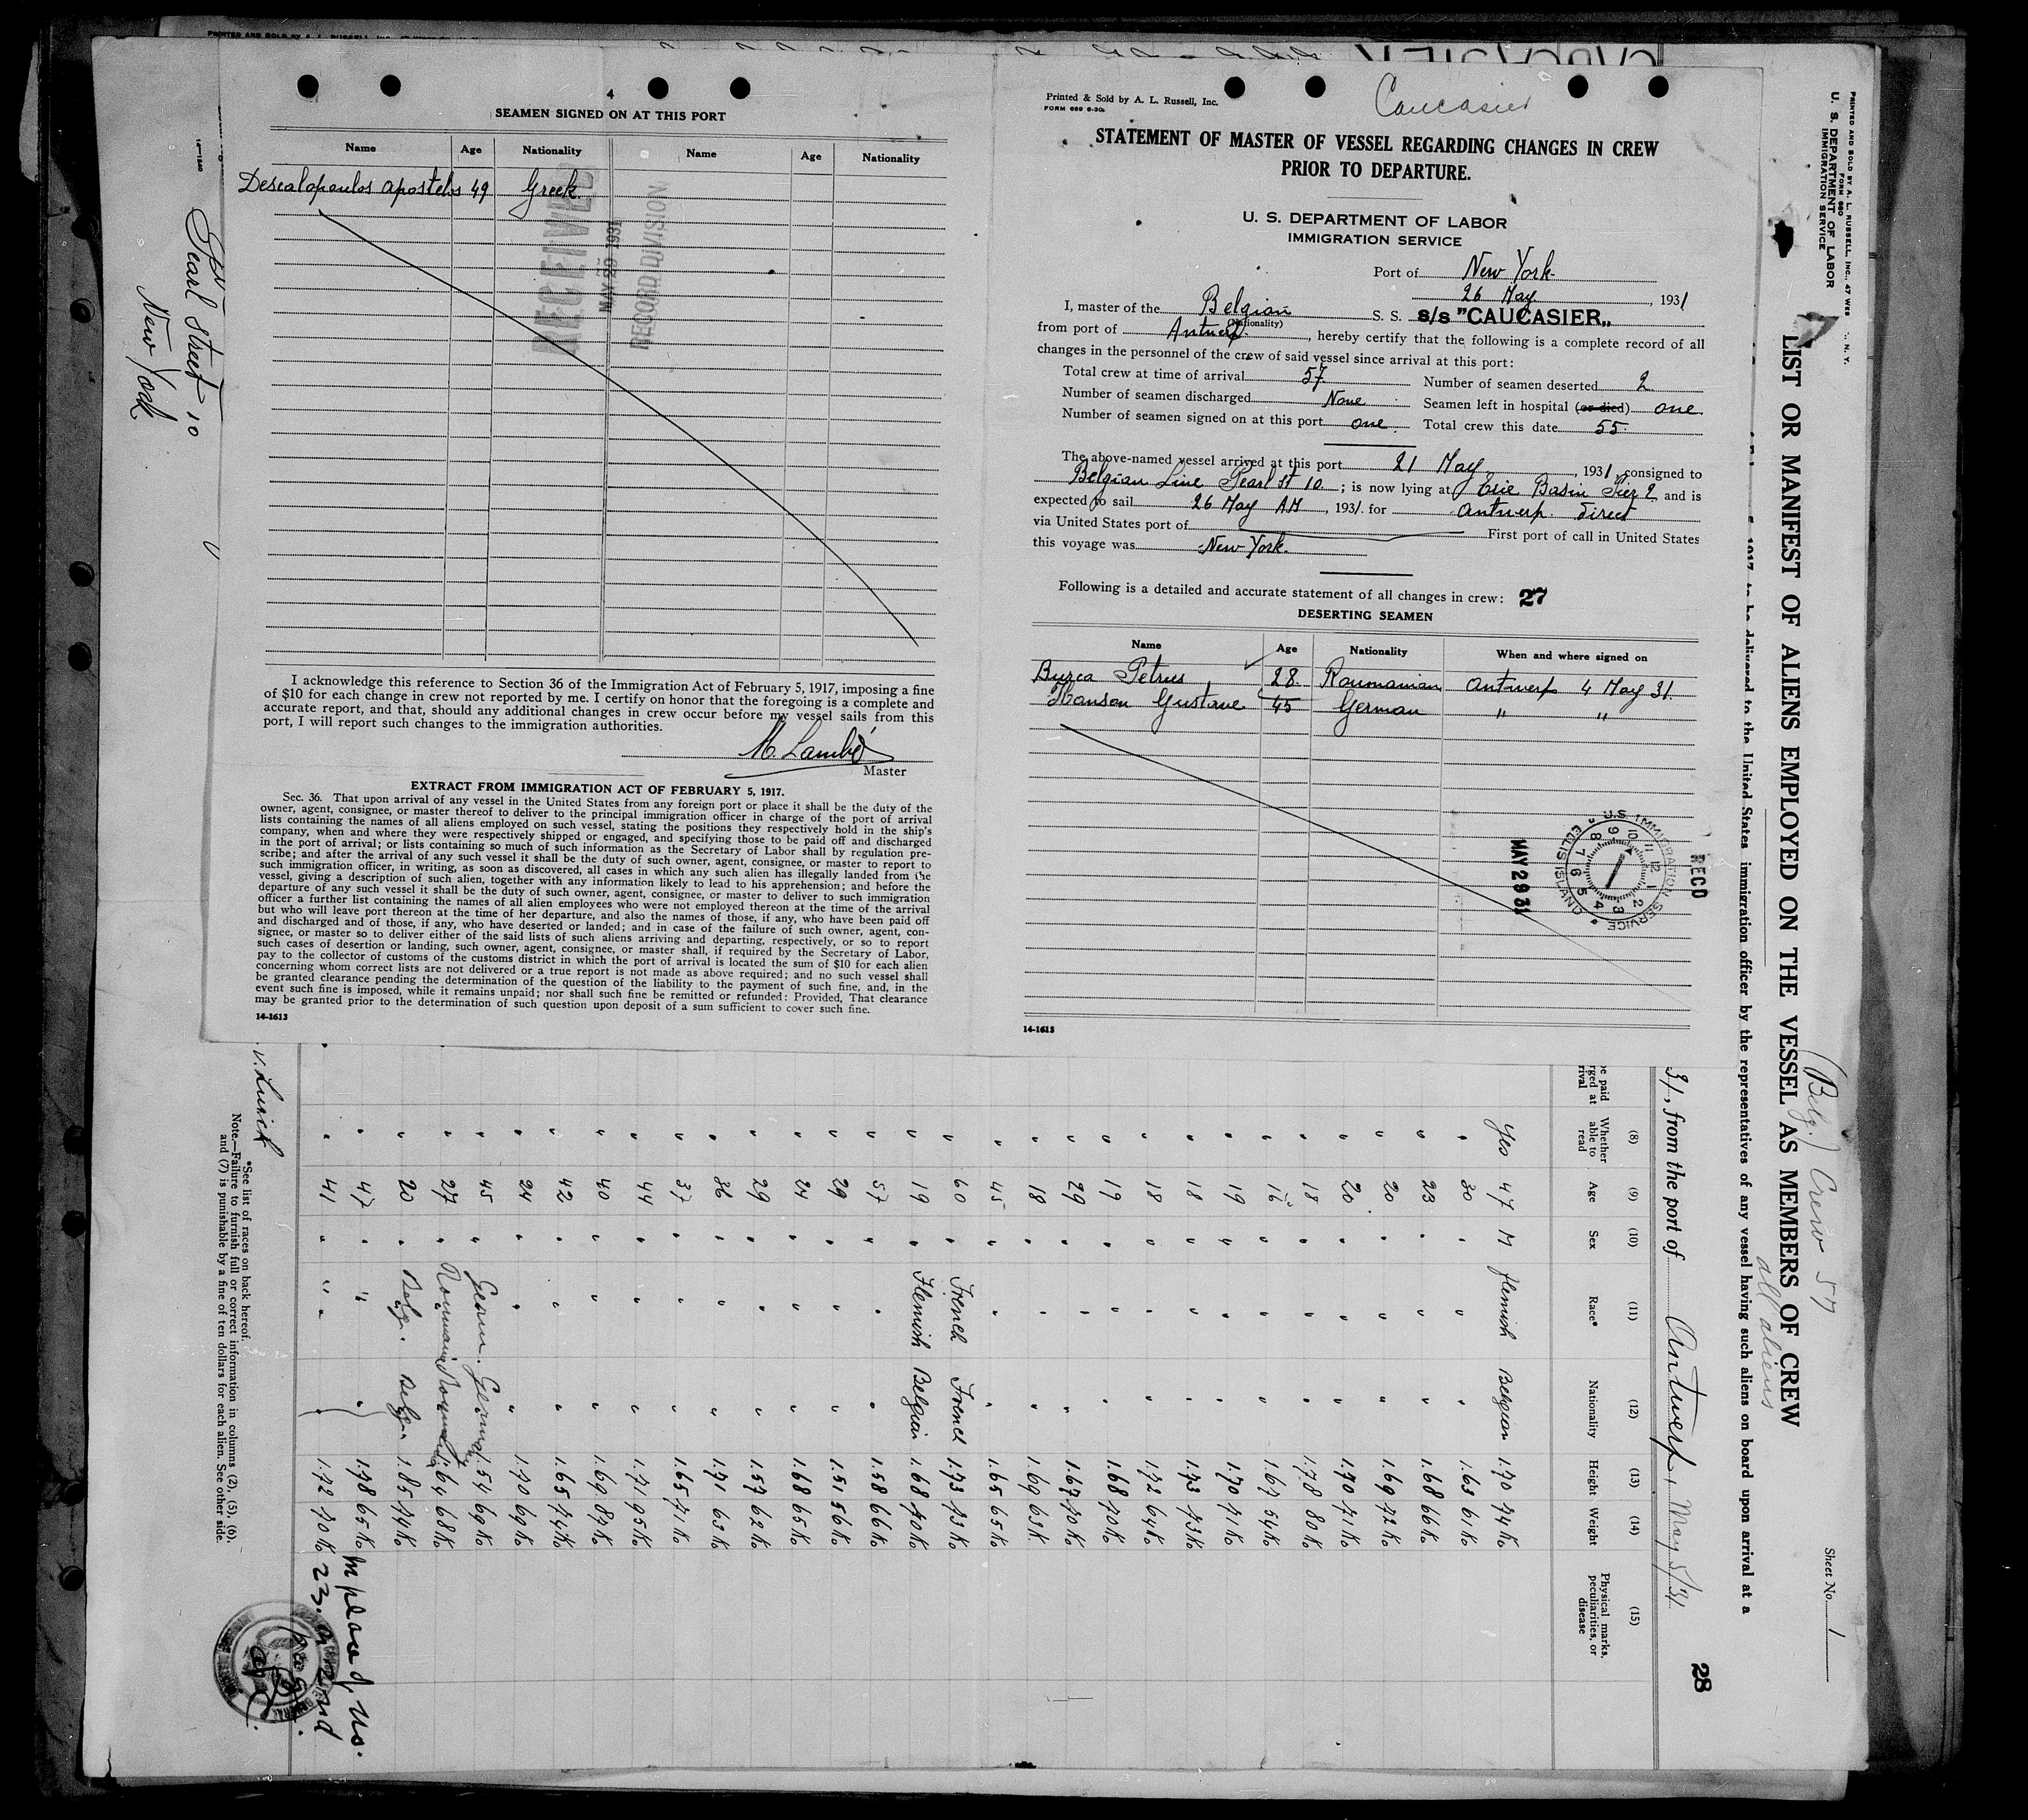 PRINTED AND SOLD BY A. L. RUSSELL, INC.
4
SEAMEN SIGNED ON AT THIS PORT
Name Age Nationality Name Age Nationality
Descalopoulos Apostolos 49 Greek
RECEIVED
MAY 29 1931
RECORD DIVISION
I acknowledge this reference to Section 36 of the Immigration Act of February 5, 1917, imposing a fine
of $10 for each change in crew not reported by me. I certify on honor that the foregoing is a complete and
accurate report, and that, should any additional changes in crew occur before my vessel sails from this
port, I will report such changes to the immigration authorities.
M. Lambé
Master
EXTRACT FROM IMMIGRATION ACT OF FEBRUARY 5, 1917.
Sec. 36. That upon arrival of any vessel in the United States from any foreign port or place it shall be the duty of the
owner, agent, consignee, or master thereof to deliver to the principal immigration officer in charge of the port of arrival
lists containing the names of all aliens employed on such vessel, stating the positions they respectively hold in the ship's
company, when and where they were respectively shipped or engaged, and specifying those to be paid off and discharged
in the port of arrival; or lists containing so much of such information as the Secretary of Labor shall by regulation pre-
scribe; and after the arrival of any such vessel it shall be the duty of such owner, agent, consignee, or master to report to
such immigration officer, in writing, as soon as discovered, all cases in which any such alien has illegally landed from the
vessel, giving a description of such alien, together with any information likely to lead to his apprehension; and before the
departure of any such vessel it shall be the duty of such owner, agent, consignee, or master to deliver to such immigration
officer a further list containing the names of all alien employees who were not employed thereon at the time of the arrival
but who will leave port thereon at the time of her departure, and also the names of those, if any, who have been paid off
and discharged and of those, if any, who have deserted or landed; and in case of the failure of such owner, agent, con-
signee, or master so to deliver either of the said lists of such aliens arriving and departing, respectively, or so to report
such cases of desertion or landing, such owner, agent, consignee, or master shall, if required by the Secretary of Labor,
pay to the collector of customs of the customs district in which the port of arrival is located the sum of $10 for each alien
concerning whom correct lists are not delivered or a true report is not made as above required; and no such vessel shall
be granted clearance pending the determination of the question of the liability to the payment of such fine, and, in the
event such fine is imposed, while it remains unpaid; nor shall such fine be remitted or refunded: Provided, That clearance
may be granted prior to the determination of such question upon deposit of a sum sufficient to cover such fine.
14-1613
Printed & Sold by A. L. Russell, Inc.
FORM 689 6-30
Caucasier
STATEMENT OF MASTER OF VESSEL REGARDING CHANGES IN CREW
PRIOR TO DEPARTURE.
U. S. DEPARTMENT OF LABOR
IMMIGRATION SERVICE
Port of New York
26 May, 1931
I, master of the Belgian S. S. s/s "CAUCASIER„
(Nationality)
from port of Antwerp, hereby certify that the following is a complete record of all
changes in the personnel of the crew of said vessel since arrival at this port:
Total crew at time of arrival 57 Number of seamen deserted 2
Number of seamen discharged None Seamen left in hospital (or died) one
Number of seamen signed on at this port one Total crew this date 55
The above-named vessel arrived at this port 21 May, 1931, consigned to
Belgian Line Pearl St 10; is now lying at Erie Basin Pier 2 and is
expected to sail 26 May AM, 1931 for Antwerp direct
via United States port of First port of call in United States
this voyage was New York.
Following is a detailed and accurate statement of all changes in crew: 27
DESERTING SEAMEN
Name Age Nationality When and where signed on
Burca Petrus 28 Roumanian Antwerp 4 May 31
Hanson Gustave 45 German " "
U.S. IMMIGRATION SERVICE ELLIS ISLAND
12 1 2 3 4 5 6 7 8 9 10 11
MAY 29 31
RECD
14-1613
Pearl Street 10
New York
PRINTED AND SOLD BY A. L. RUSSELL, INC., 47 WES N. Y.
FORM 680
U. S. DEPARTMENT OF LABOR
IMMIGRATION SERVICE
Sheet No. 1
(Belg.) Crew 57
all aliens
LIST OR MANIFEST OF ALIENS EMPLOYED ON THE VESSEL AS MEMBERS OF CREW
1917, to be delivered to the United States immigration officer by the representatives of any vessel having such aliens on board upon arrival at a
31, from the port of Antwerp, May 5/31
28
(8) (9) (10) (11) (12) (13) (14) (15)
Whether able to read Age Sex Race* Nationality Height Weight Physical marks, peculiarities, or disease
Yes 47 M flemish Belgian 1.70 74 Ko
" 30 " " " 1.63 61 Ko
" 23 " " " 1.68 66 Ko
" 20 " " " 1.69 72 Ko
" 20 " " " 1.70 71 Ko
" 18 " " " 1.78 80 Ko
" 16 " " " 1.67 54 Ko
" 19 " " " 1.70 71 Ko
" 18 " " " 1.73 73 Ko
" 18 " " " 1.72 64 Ko
" 19 " " " 1.68 70 Ko
" 29 " " " 1.67 70 Ko
" 18 " " " 1.69 63 K.
" 45 " " " 1.65 65 Ko
" 60 " French French 1.73 73 Ko
" 19 " Flemish Belgian 1.68 70 Ko
" 57 " " " 1.58 66 Ko
" 29 " " " 1.51 56 Ko
" 24 " " " 1.68 65 Ko
" 29 " " " 1.57 62 Ko
" 36 " " " 1.71 63 Ko
" 37 " " " 1.65 71 Ko
" 44 " " " 1.71 95 Ko
" 40 " " " 1.69 87 Ko
" 42 " " " 1.65 74 Ko
" 24 " " " 1.70 69 Ko
" 45 " Germ. German 1.54 69 Ko
" 27 " Roumanian Roumanian 1.64 68 Ko
" 20 " Belg. Belg. 1.85 74 Ko
" 47 " " " 1.78 65 Ko In place of us.
" 41 " " " 1.72 70 Ko
*See list of races on back hereof.
Note.—Failure to furnish full or correct information in columns (2), (5), (6),
and (7) is punishable by a fine of ten dollars for each alien. See other side.